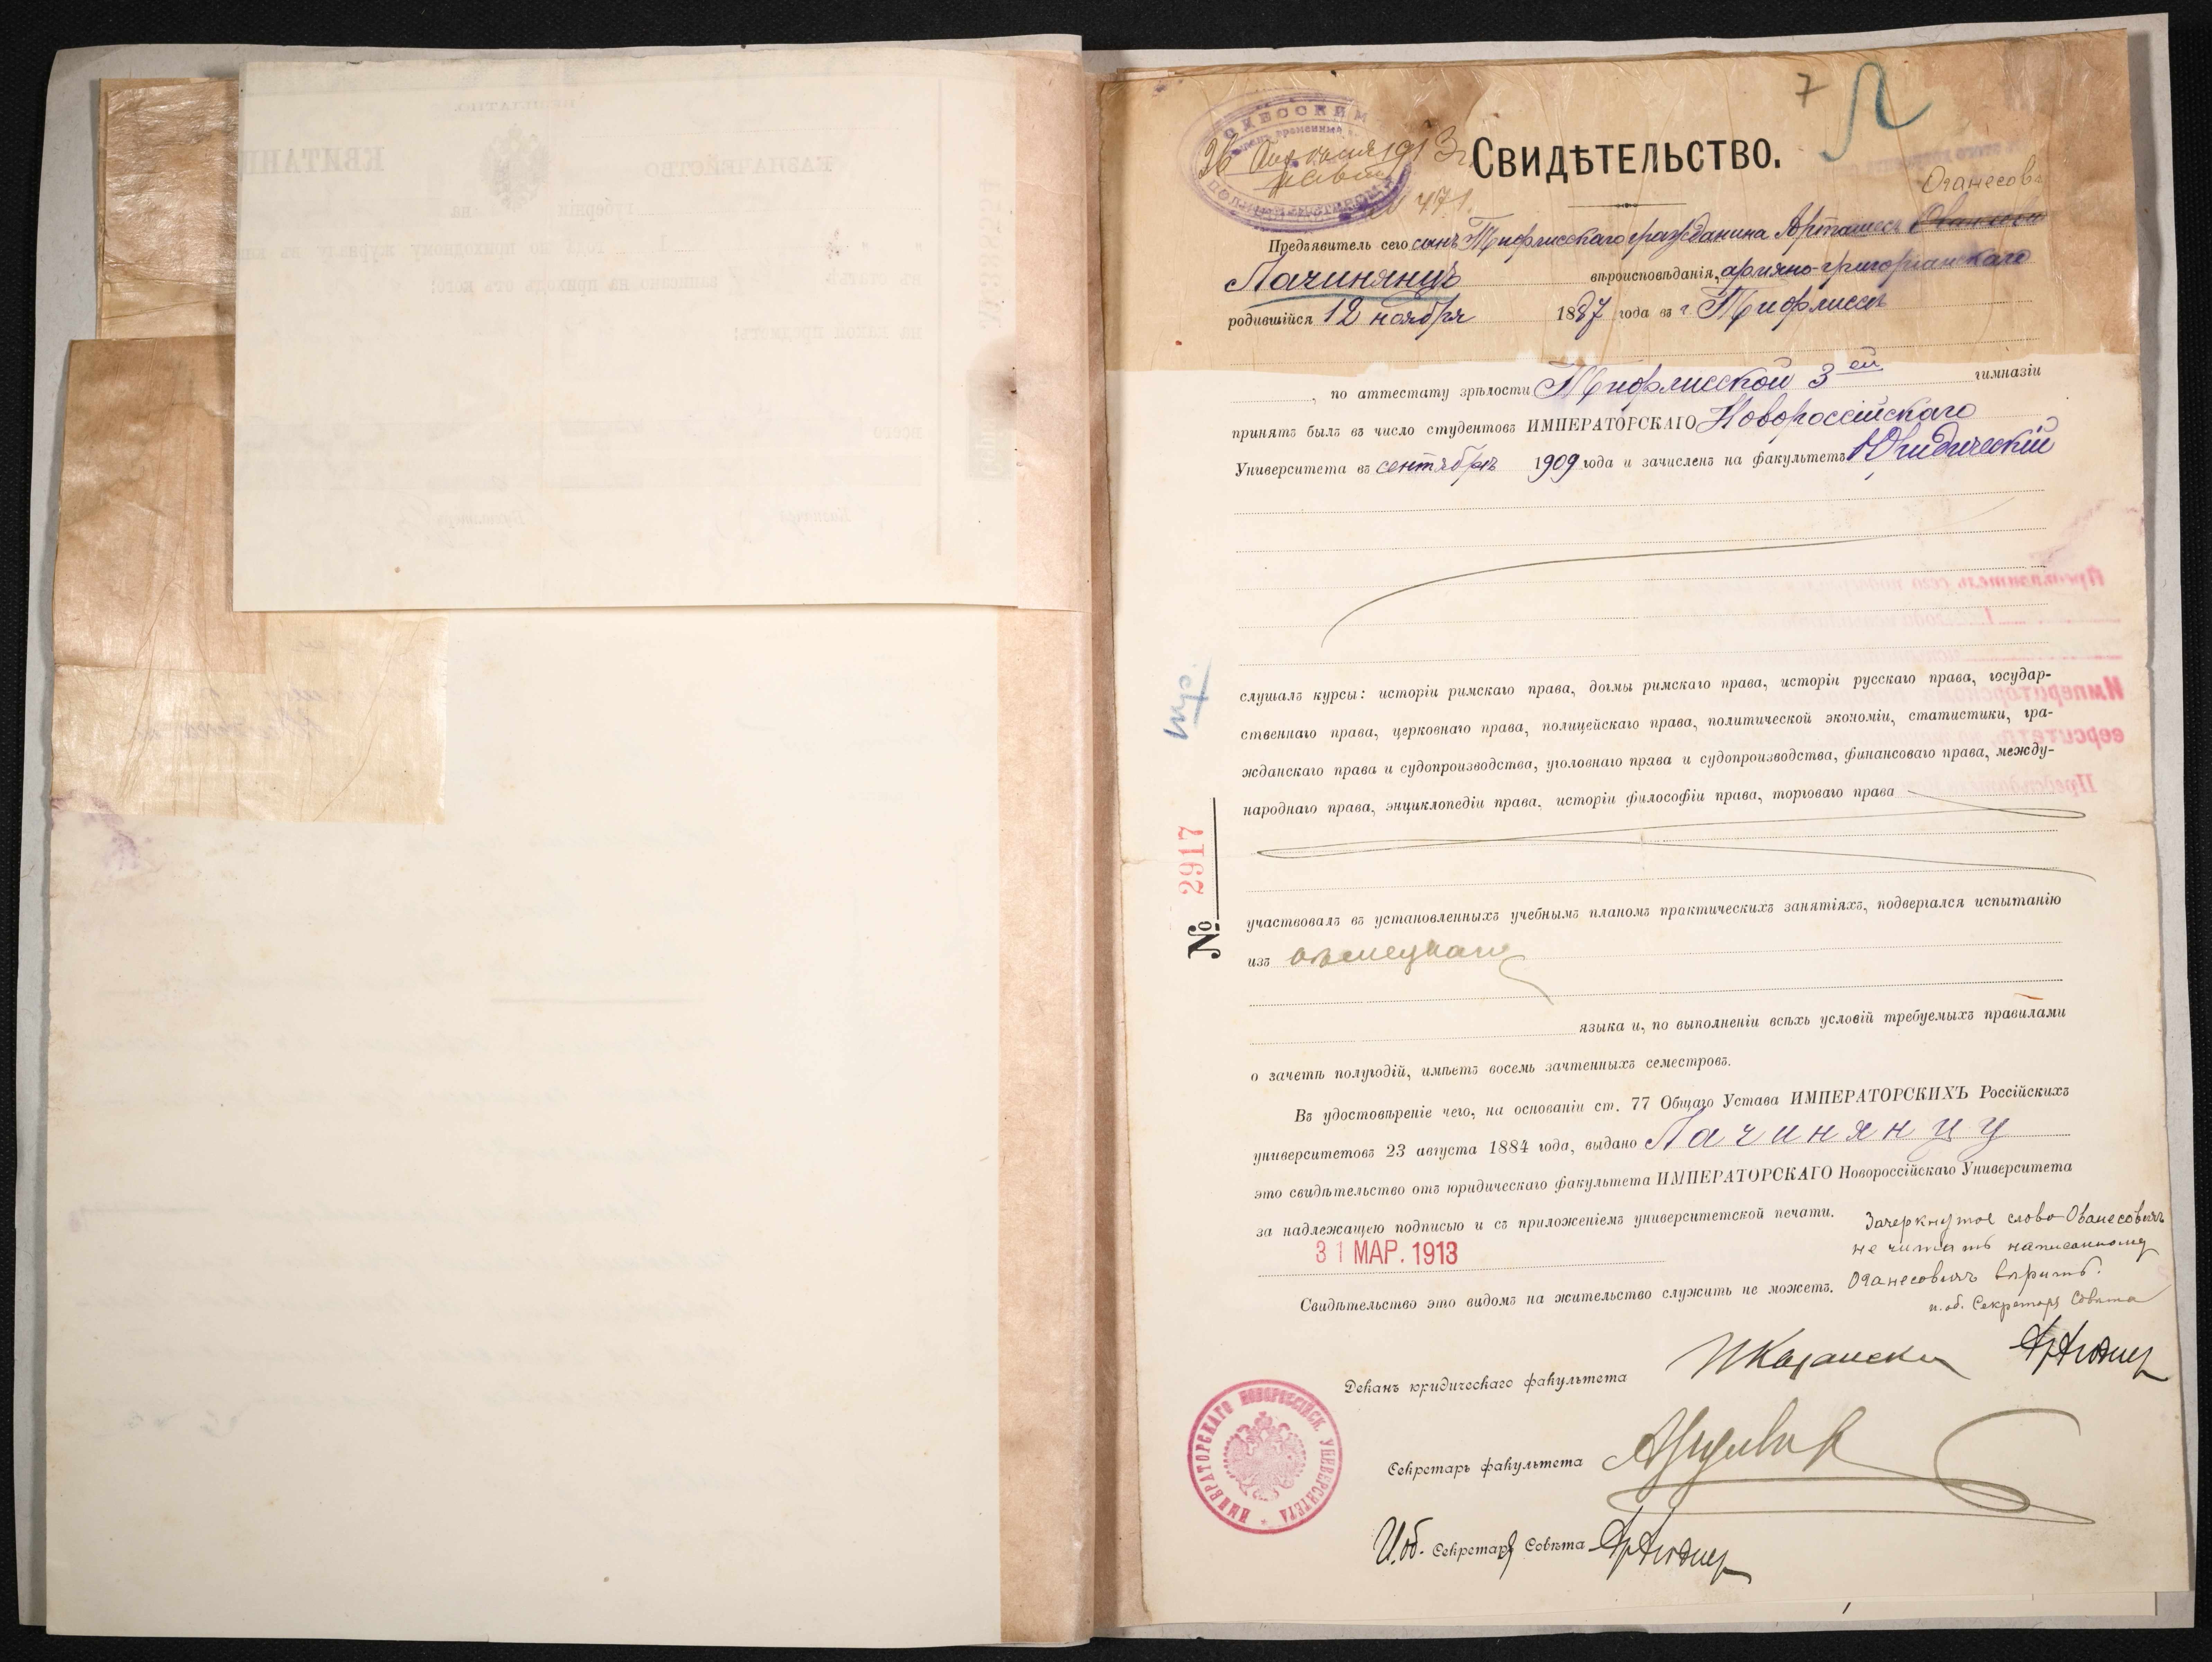 7
ОДЕССКИМ
26 Апреля 1913 г.
№ 471.
СВИДѢТЕЛЬСТВО.
Оганесовъ
Предъявитель сего сынъ Тифлисскаго гражданина Арташесъ
Лачинянцъ вѣроисповѣданія, армяно-григоріанскаго
родившійся 12 ноября 1887 года въ г. Тифлисѣ
, по аттестату зрѣлости Тифлисской 3ей гимназіи
принятъ былъ въ число студентовъ ИМПЕРАТОРСКАГО Новороссійскаго
Университета въ сентябрѣ 1909 года и зачисленъ на факультетъ Юридическій
слушалъ курсы: исторіи римскаго права, догмы римскаго права, исторіи русскаго права, государ-
ственнаго права, церковнаго права, полицейскаго права, политической экономіи, статистики, гра-
жданскаго права и судопроизводства, уголовнаго права и судопроизводства, финансоваго права, между-
народнаго права, энциклопедіи права, исторіи философіи права, торговаго права
№ 2917
участвовалъ въ установленныхъ учебнымъ планомъ практическихъ занятіяхъ, подвергался испытанію
изъ нѣмецкаго
языка и, по выполненіи всѣхъ условій требуемыхъ правилами
о зачетѣ полугодій, имѣетъ восемь зачтенныхъ семестровъ.
Въ удостовѣреніе чего, на основаніи ст. 77 Общаго Устава ИМПЕРАТОРСКИХЪ Россійскихъ
университетовъ 23 августа 1884 года, выдано Лачинянцу
это свидѣтельство отъ юридическаго факультета ИМПЕРАТОРСКАГО Новороссійскаго Университета
за надлежащею подписью и съ приложеніемъ университетской печати.
31 МАР. 1913
Зачеркнутое слово Ованесовичъ
не читать написанному
Оганесовичъ вѣрить.
и. об. Секретаря Совѣта
Свидѣтельство это видомъ на жительство служить не можетъ.
Деканъ юридическаго факультета
Секретарь факультета
И. об. Секретаря Совѣта
ИМПЕРАТОРСКАГО НОВОРОССІЙСК. УНИВЕРСИТЕТА